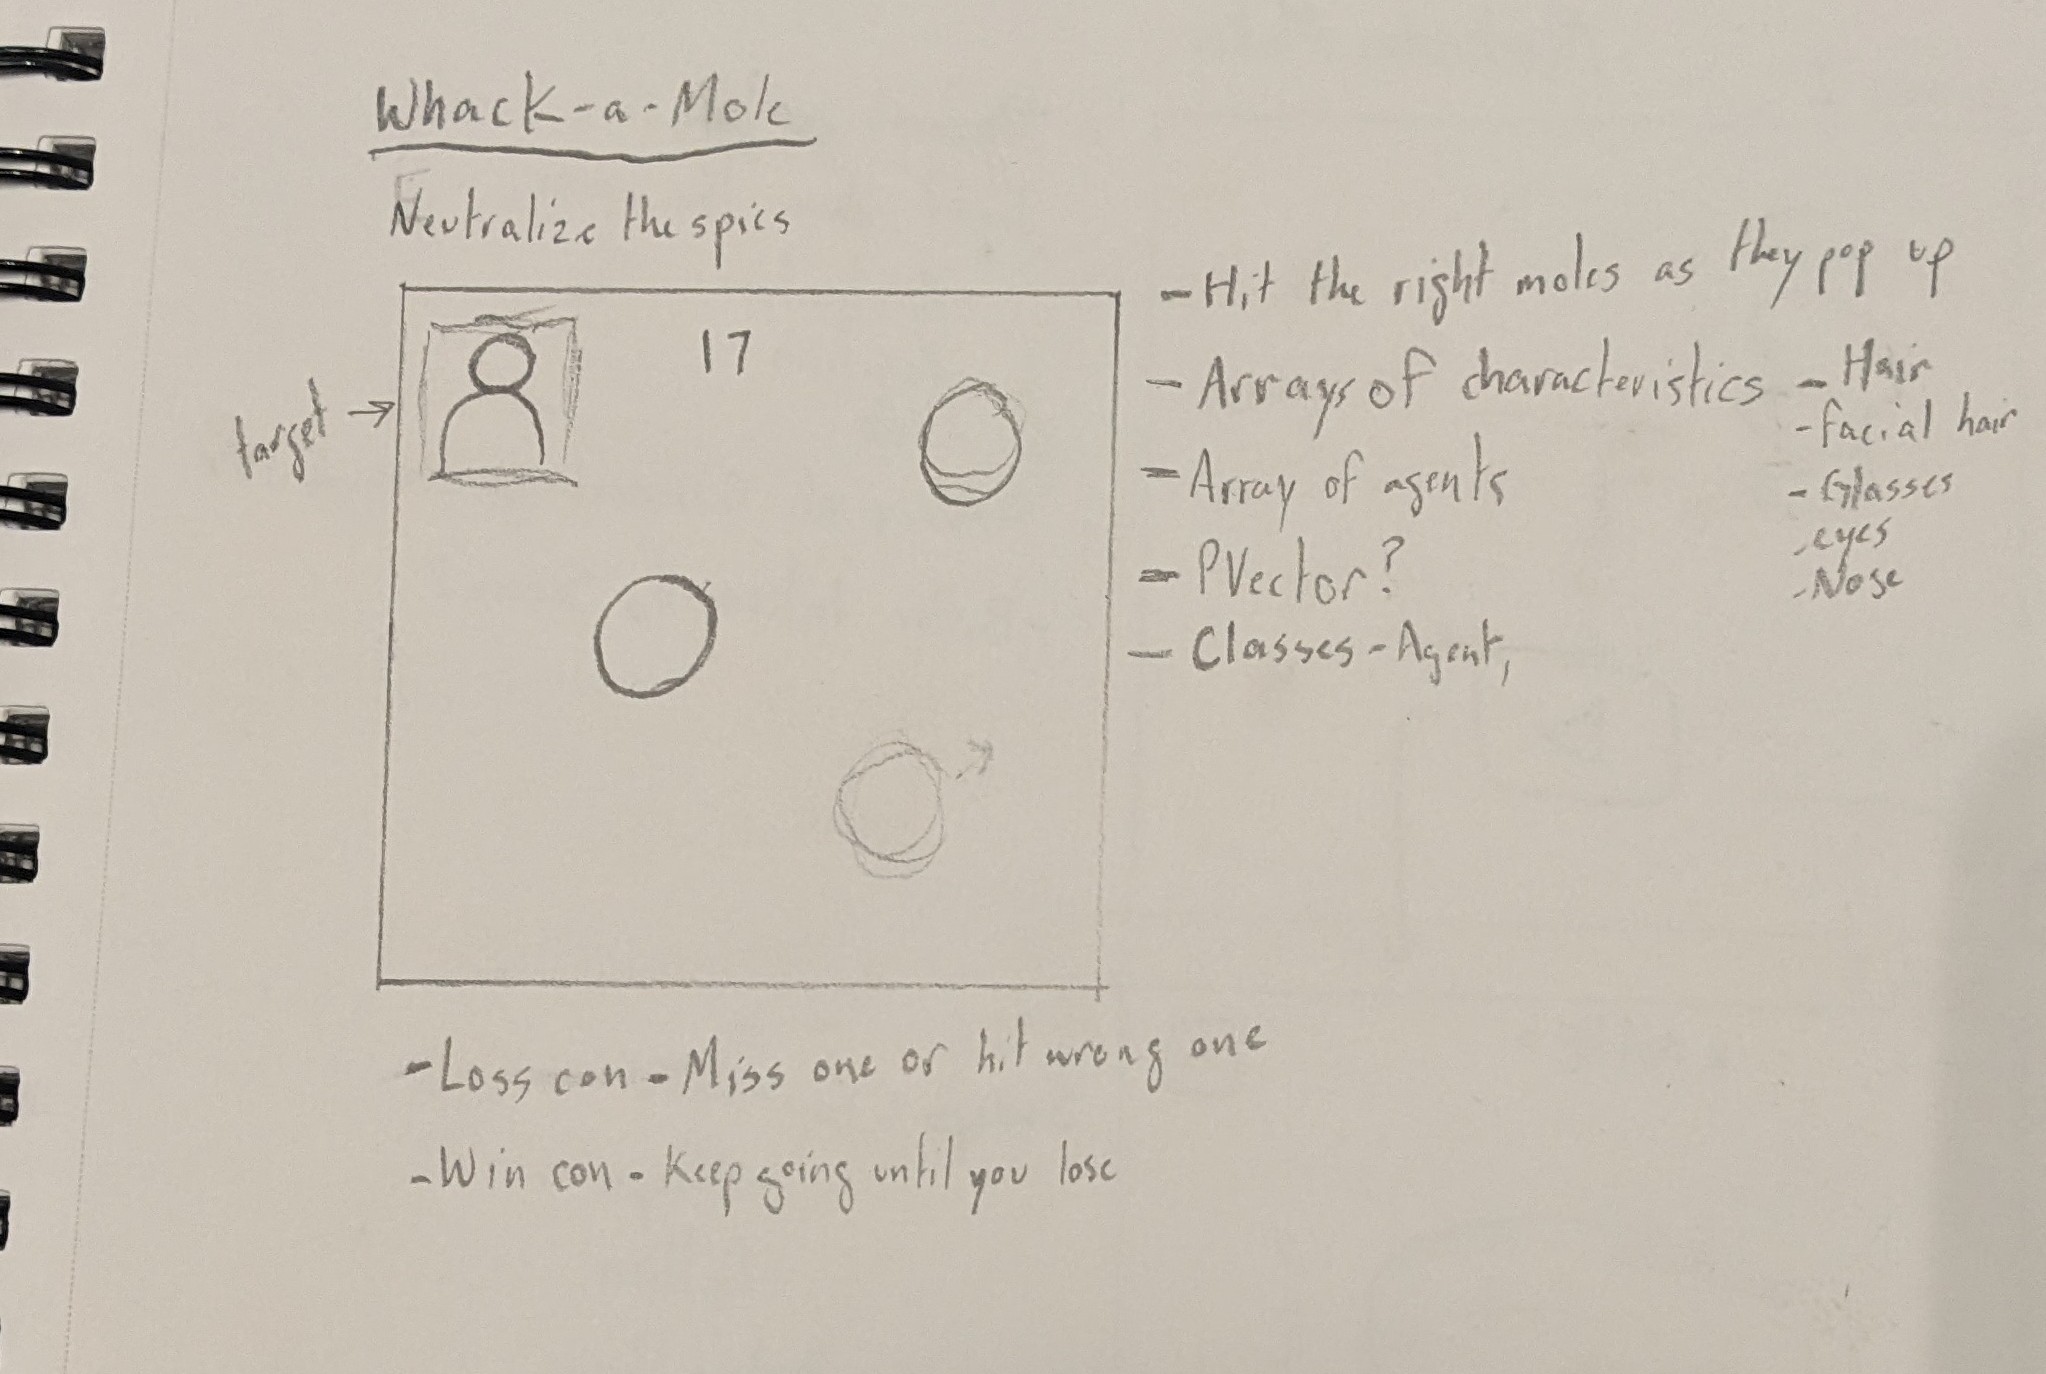 Whack-a-Mole
Neutralize the spies
target →
17
- Hit the right moles as they pop up
- Arrays of characteristics - Hair
- facial hair
- Glasses
- eyes
- Nose
- Array of agents
- PVector?
- Classes - Agent,
- Loss con - Miss one or hit wrong one
- Win con - Keep going until you lose